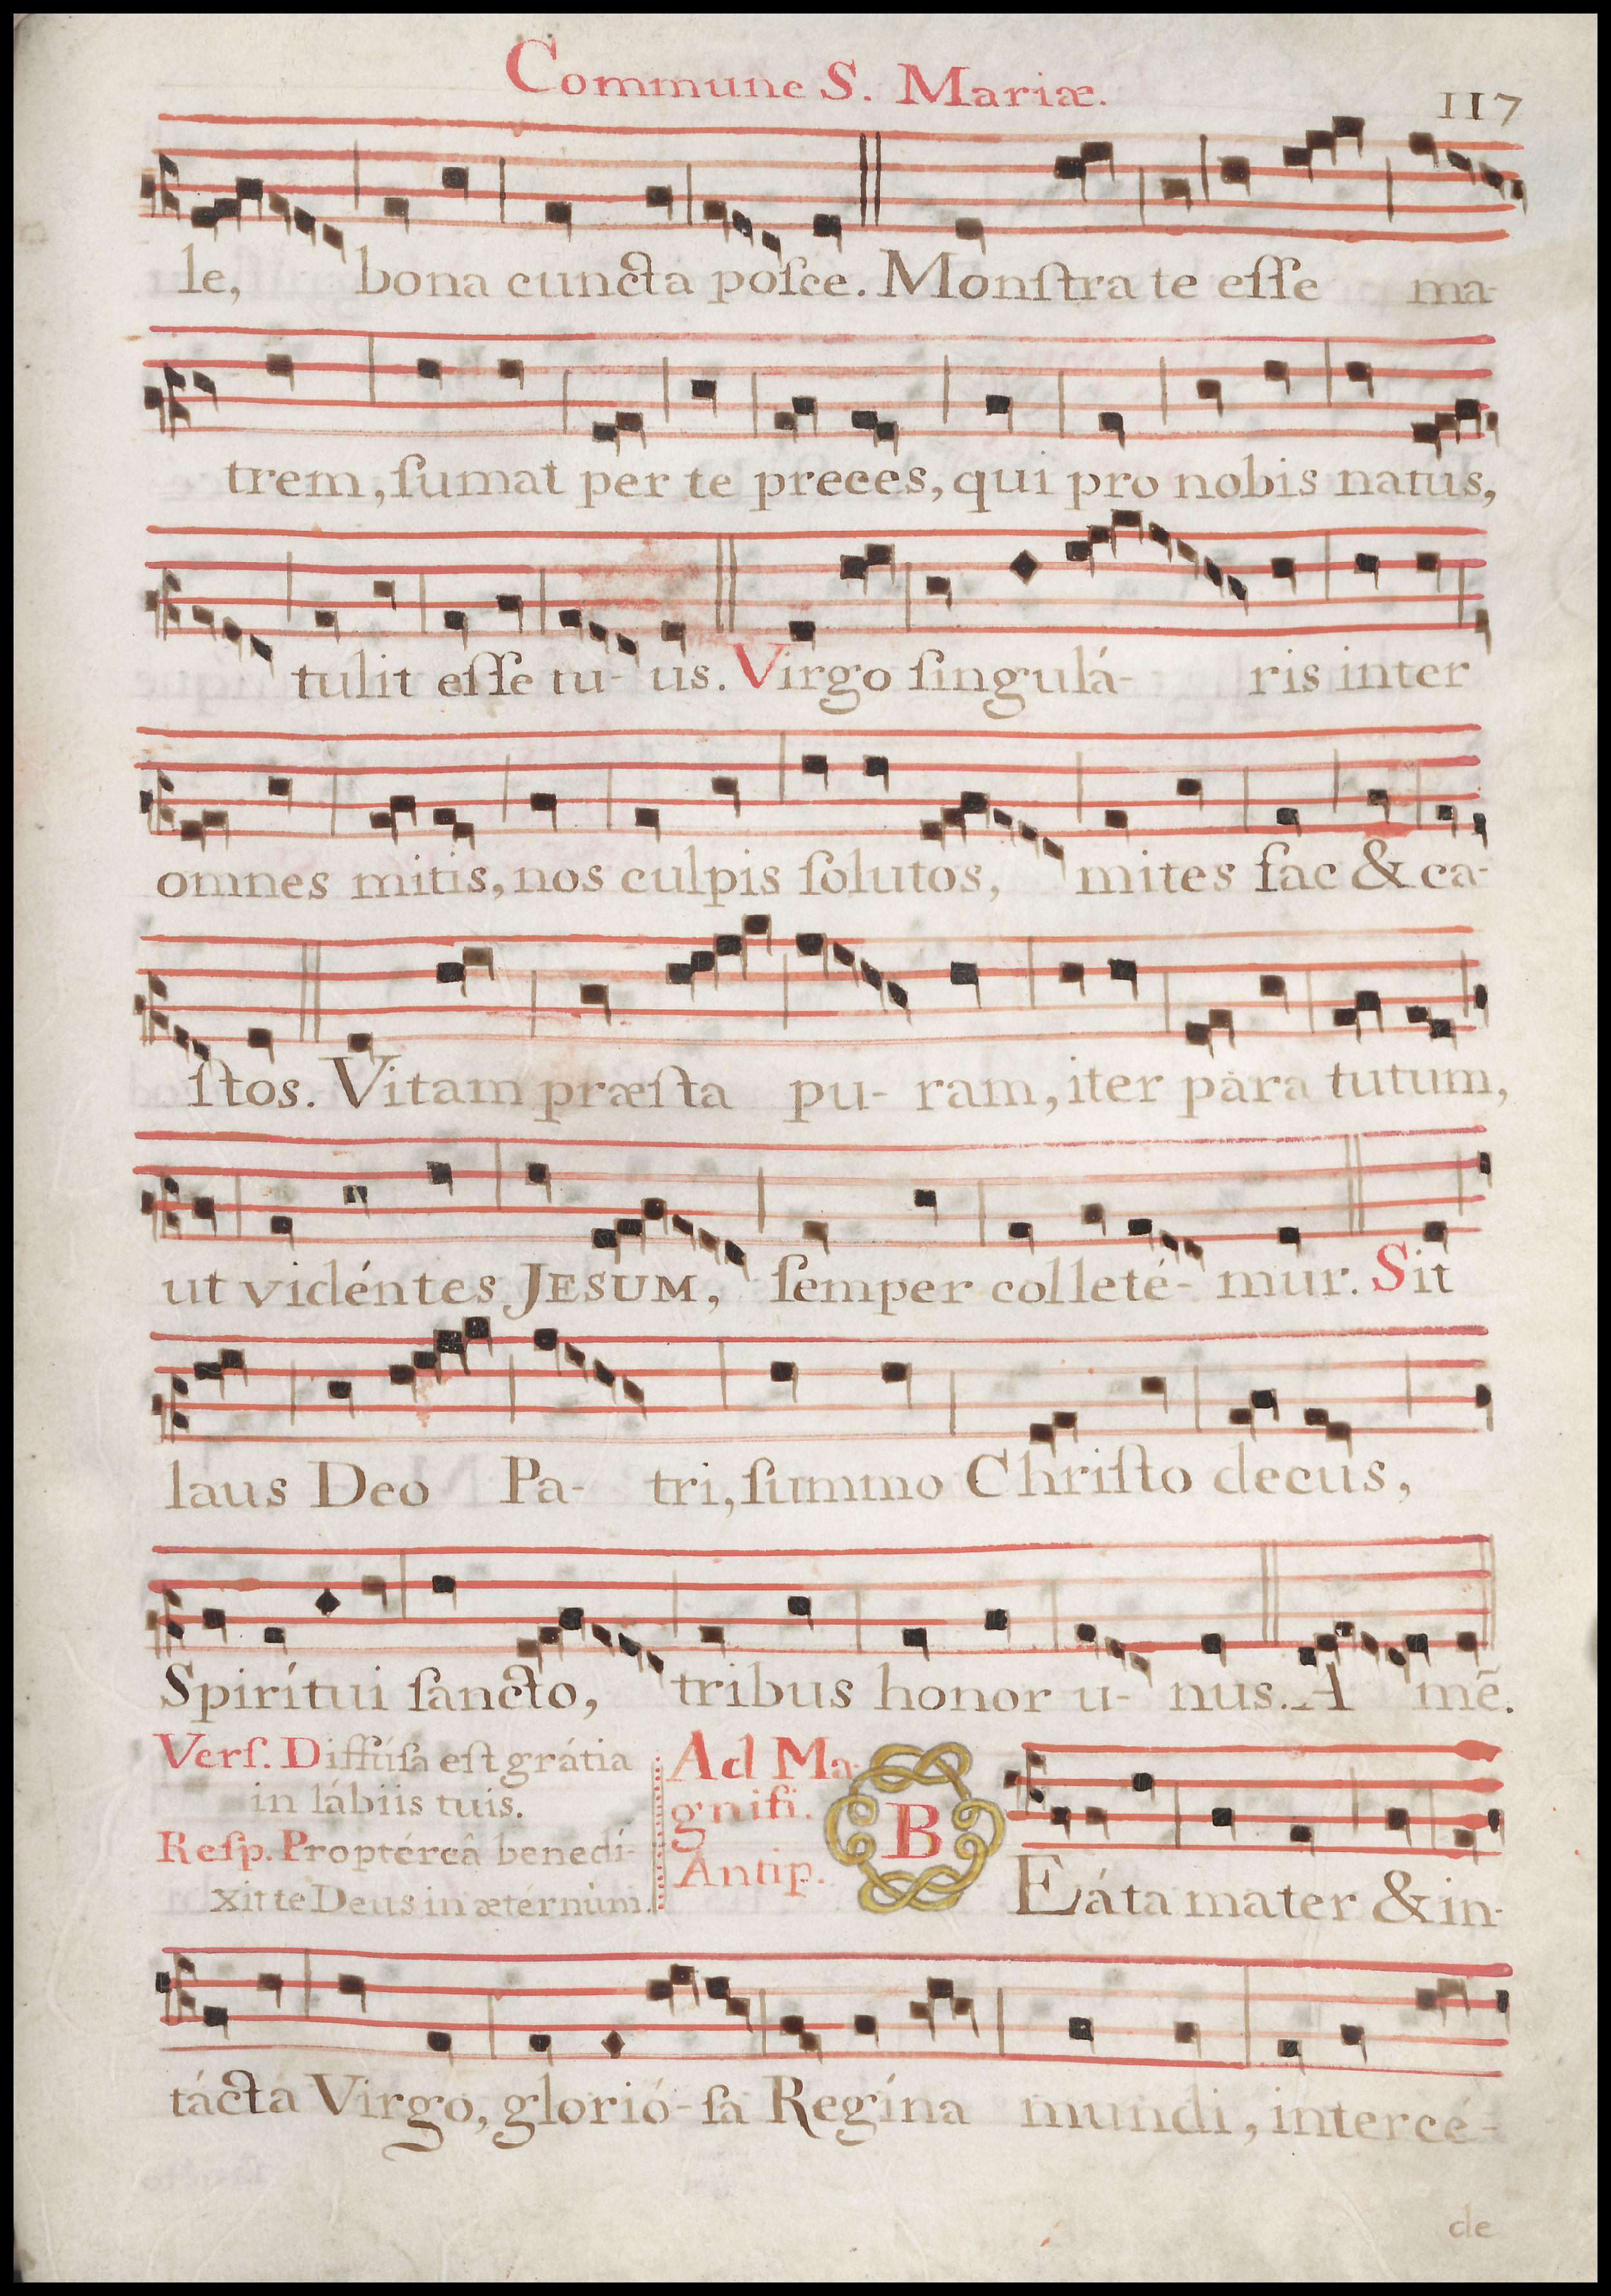 Commune S. Mariæ.
117
le, bona cuncta poſce. Monſtra te eſſe ma-
trem, ſumat per te preces, qui pro nobis natus,
tulit eſſe tu- us. Virgo ſingulá- ris inter
omnes mitis, nos culpis ſolutos, mites fac & ca-
ſtos. Vitam præſta pu- ram, iter para tutum,
ut vidéntes JESUM, ſemper colleté- mur. Sit
laus Deo Pa- tri, ſummo Chriſto decus,
Spirítui ſancto, tribus honor u- nus. A mẽ.
Verſ. Diffúſa eſt grátia
in lábiis tuis.
Reſp. Proptéreâ benedí-
xit te Deus in ætérnùm.
Ad Ma-
gnifi.
Antip.
BEáta mater & in-
tácta Virgo, glorió- ſa Regína mundi, intercé-
de